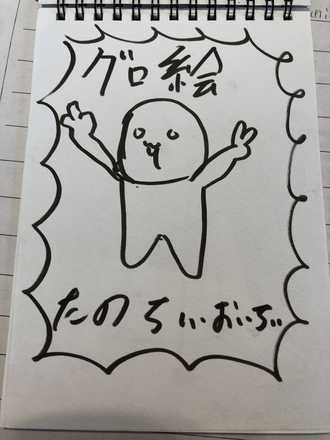 グロ絵
たのちぃおいちぃ